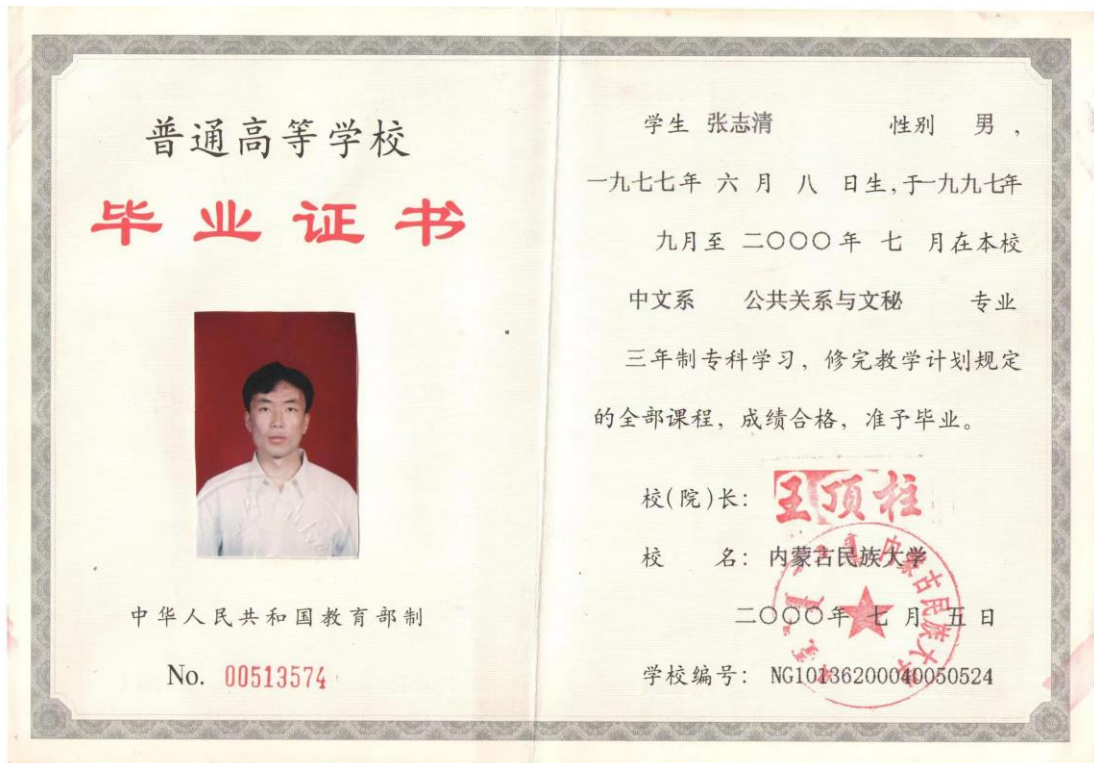 普通高等学校
毕业证书
中华人民共和国教育部制
No. 00513574
学生 张志清 性别 男 ,
一九七七年 六 月 八 日生,于一九九七年
九月至 二〇〇〇年 七 月在本校
中文系 公共关系与文秘 专业
三年制专科学习，修完教学计划规定
的全部课程，成绩合格，准予毕业。
校(院)长： 王顶柱
校 名：内蒙古民族大学
内蒙古民族大学
二〇〇〇年 七 月 五 日
学校编号： NG10136200040050524